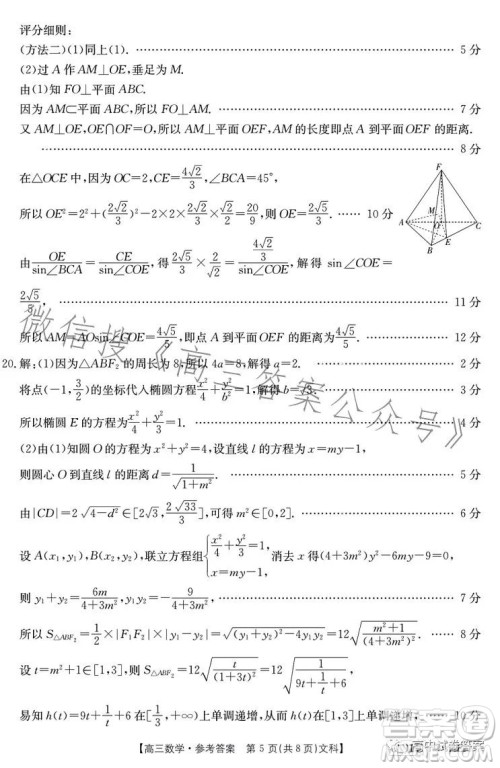 评分细则:
(方法二)(1)同上(1). …… 5分
(2)过A作AM⊥OE,垂足为M.
由(1)知FO⊥平面ABC.
因为AM⊂平面ABC,所以FO⊥AM. …… 7分
又AM⊥OE,OE∩OF=O,所以AM⊥平面OEF,AM的长度即点A到平面OEF的距离.
…… 8分
在△OCE中,因为OC=2,CE=4√2/3,∠BCA=45°,
所以OE²=2²+(2√2/3)²-2×2×2√2/3×√2/2=20/9,则OE=2√5/3. …… 10分
F
A M O C
B E
由OE/sin∠BCA=CE/sin∠COE,得2√5/3×2/√2=(4√2/3)/sin∠COE,解得 sin∠COE=
2√5/5, …… 11分
所以AM=AOsin∠COE=4√5/5,即点A到平面OEF的距离为4√5/5. …… 12分
20.解:(1)因为△ABF₂的周长为8,所以4a=8,解得a=2. …… 2分
将点(-1,3/2)的坐标代入椭圆方程x²/4+y²/b²=1,解得b=√3. …… 3分
所以椭圆E的方程为x²/4+y²/3=1. …… 4分
(2)由(1)知圆O的方程为x²+y²=4,设直线l的方程为x=my-1,
则圆心O到直线l的距离d=1/√(1+m²). …… 5分
由|CD|=2√(4-d²)∈[2√3,2√33/3],可得m²∈[0,2]. …… 6分
设A(x₁,y₁),B(x₂,y₂),联立方程组{x²/4+y²/3=1, x=my-1,消去x得(4+3m²)y²-6my-9=0,
则y₁+y₂=6m/(4+3m²),y₁y₂=-9/(4+3m²), …… 7分
所以S△ABF₂=1/2×|F₁F₂|×|y₁-y₂|=√((y₁+y₂)²-4y₁y₂)=12√((m²+1)/(4+3m²)²). …… 8分
设t=m²+1∈[1,3],则S△ABF₂=12√(t/(1+3t)²)=12√(1/(9t+1/t+6)),
易知h(t)=9t+1/t+6在[1/3,+∞)上单调递增,从而h(t)在[1,3]上单调递增, …… 10分
【高三数学·参考答案 第5页(共8页)文科】
微信搜《高三答案公众号》